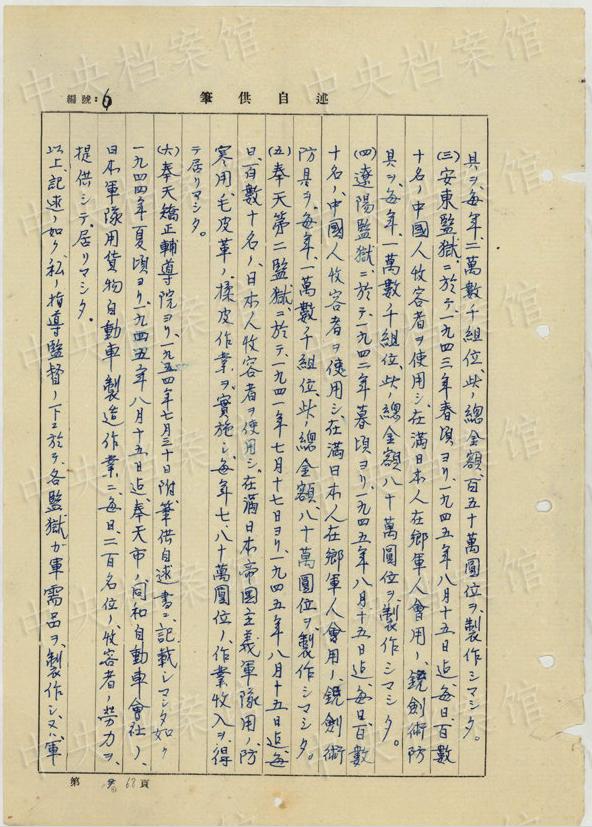 編號：6
述自供筆
具ヲ、每年、二萬數千組位、此ノ總金額、百五十萬圓位ヲ、製作シマシタ。
(三)安東監獄ニ於テ、一九四三年春頃ヨリ、一九四五年八月十五日迄、每日、百數
十名ノ中國人收容者ヲ使用シ、在滿日本人在鄉軍人會用ノ、銃劍術防
具ヲ、每年、一萬數千組位、此ノ總金額八十萬圓位ヲ、製作シマシタ。
(四)遼陽監獄ニ於テ、一九四二年暮頃ヨリ、一九四五年八月十五日迄、每日、百數
十名ノ中國人收容者ヲ使用シ、在滿日本人在鄉軍人會用ノ、銃劍術
防具ヲ、每年、一萬數千組位、此ノ總金額、八十萬圓位ヲ、製作シマシタ。
(五)奉天第二監獄ニ於テ、一九四一年七月十七日ヨリ、一九四五年八月十五日迄、每
日、百數十名ノ、日本人收容者ヲ使用シ、在滿日本帝國主義軍隊用ノ、防
寒用、毛皮革ノ、揉皮作業ヲ、實施シ、每年、七、八十萬圓位ノ、作業收入ヲ、得
テ居リマシタ。
(六)奉天矯正輔導院ヨリ、一九五四年七月三十日附、筆供自述書ニ、記載シマシタ如ク
一九四四年夏頃ヨリ、一九四五年八月十五日迄、奉天市ノ、同和自動車會社ノ、
日本軍隊用貨物自動車製造作業ニ、每日、二百名位ノ、收容者ノ、勞力ヲ、
提供シテ、居リマシタ。
以上、記述ノ如ク、私ノ指導監督ノ下ニ於テ、各監獄ガ軍需品ヲ、製作シ、又ハ、軍
第 62 頁
中央档案馆